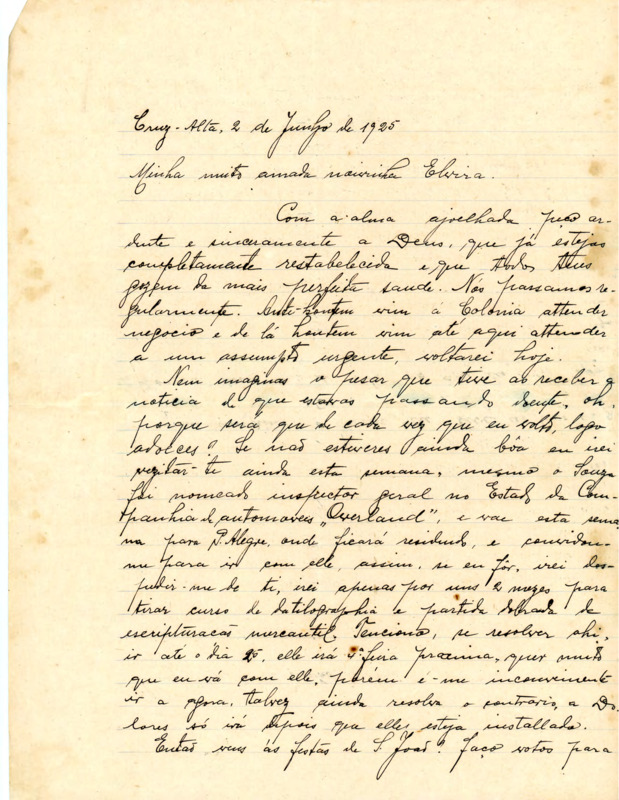 Cruz-Alta, 2 de Junho de 1925
Minha muito amada noivinha Elvira.
Com a alma ajoelhada peço ar-
dente e sinceramente a Deus, que já estejas
completamente restabelecida e que todos teus
gozem da mais perfeita saude. Nós passamos re-
gularmente. Ante-hontem vim á Colonia attender
negocio e de lá hontem vim até aqui attender
a um assumpto urgente, voltarei hoje.
Nem imaginas o pesar que tive ao receber a
noticia de que estavas passando doente, oh,
porque será que de cada vez que eu volto, logo
adoeces? Se não estiveres ainda bôa eu irei
vezitar-te ainda esta semana, mesmo o Souza
foi nomeado inspector geral no Estado da Com-
panhia de automoveis "Overland", e vae esta sema
na para P. Alegre, onde ficará residindo, e convidou-
me para ir com elle, assim, se eu fôr, irei des-
pedir-me de ti, irei apenas por uns 2 mezes para
tirar curso de datilographia e partida dobrada de
escripturacão mercantil. Tenciono, se resolver ahi,
ir até o dia 20, elle irá 4ª feira proxima, quer muito
que eu vá com elle, porém é-me inconveniente
ir a agora, talvez ainda resolva o contrario, a Do-
lores só irá depois que elle esteja installado.
Então vens ás festas de S. João? Faço votos para